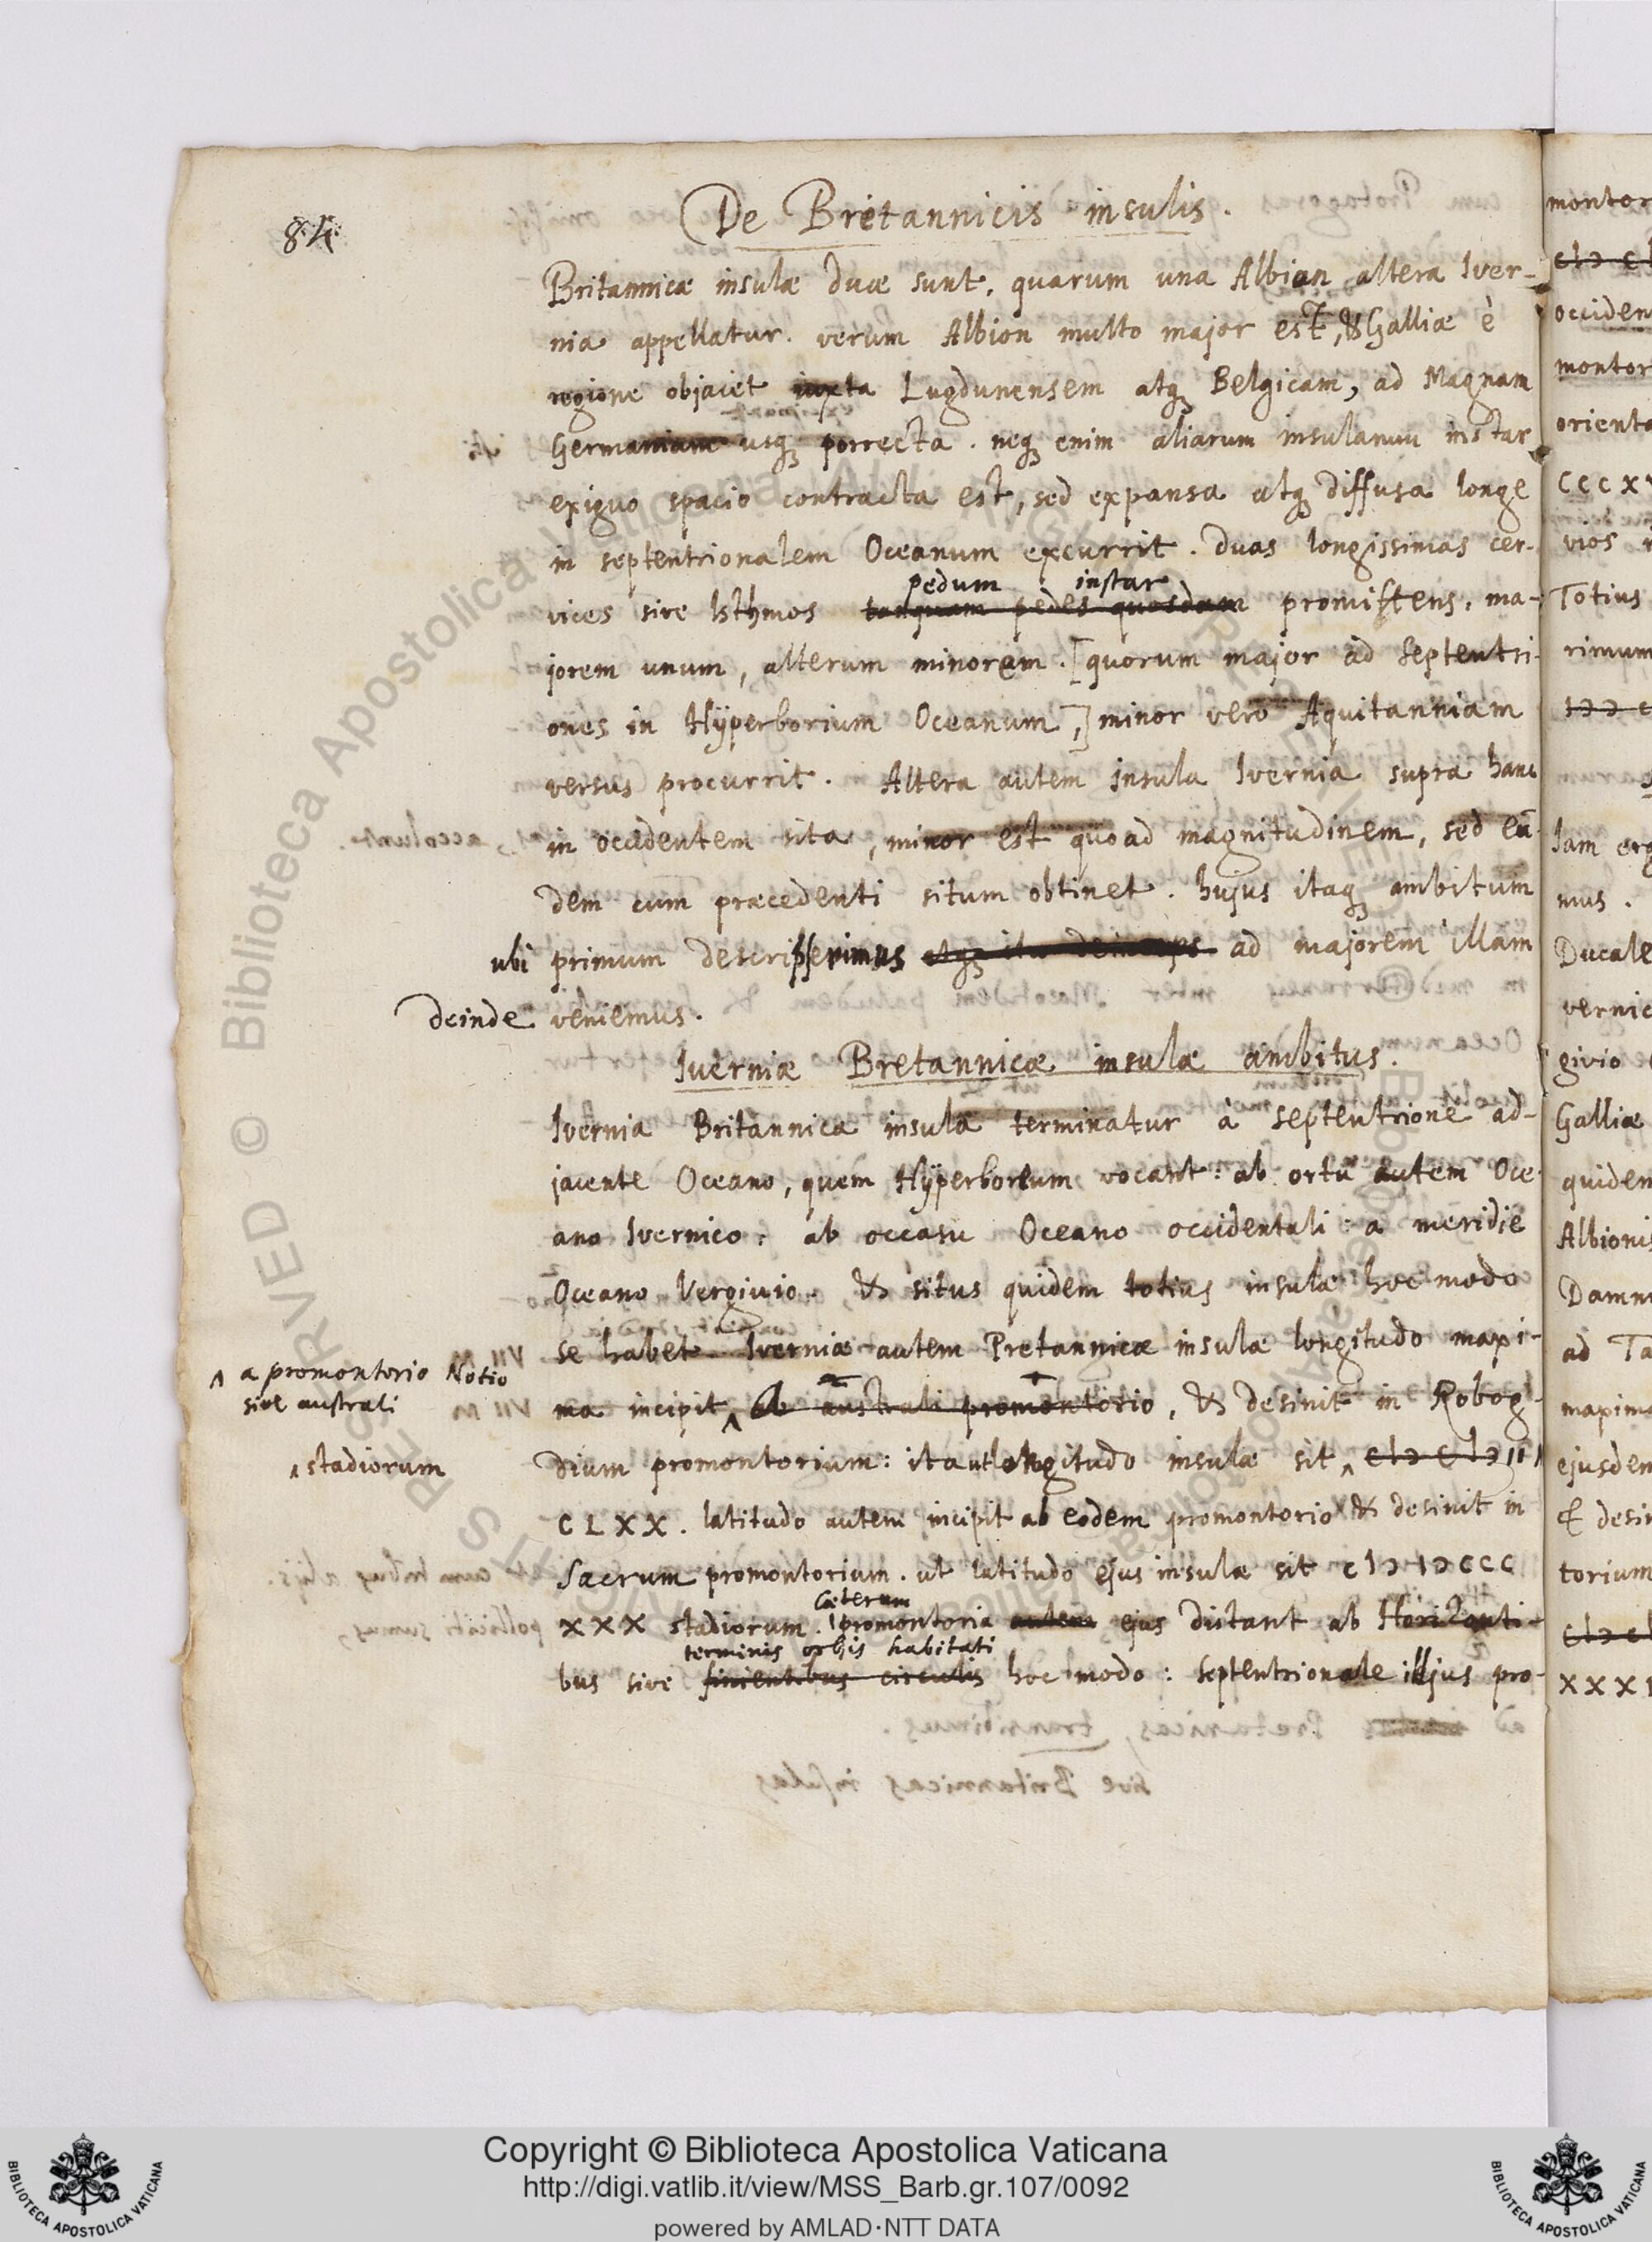 84
De Bretannicis insulis.
Britannicæ insulæ duæ sunt, quarum una Albion altera Iver-
nia appellatur. verum Albion multo major est, & Galliæ è
regione objacet iuxta Lugdunensem atq Belgicam, ad Magnam
Germaniam usq porrecta. neq enim aliarum insularum instar
exiguo spacio contracta est, sed expansa atq diffusa longe
in septentrionalem Oceanum excurrit. duas longissimas cer-
pedum instar
vices sive Isthmos tanquam pedes quosdam promittens, ma-
jorem unum, alterum minorem. [quorum major ad septentri-
ones in Hÿperborium Oceanum,] minor vero Aquitanniam
versus procurrit. Altera autem insula Ivernia supra hanc
in occidentem sita, minor est quoad magnitudinem, sed eun-
dem cum præcedenti situm obtinet. hujus itaq ambitum
ubi primum descripserimus atq ita deinceps ad majorem illam
deinde veniemus.
Iverniæ Bretannicæ insulæ ambitus.
Ivernia Britannica insula terminatur à septentrione ad-
jacente Oceano, quem Hÿperboreum vocant: ab ortu autem Oce-
ano Ivernico: ab occasu Oceano occidentali: a meridie
Oceano Vergivio. & situs quidem totius insulæ hoc modo
se habet. Iverniæ autem Pretannicæ insulæ longitudo maxi-
a promontorio Notio
sive australi
ma incipit ab australi promontorio, & desinit in Robog-
stadiorum
dium promontorium: ita ut longitudo insulæ sit cIↄ cIↄ II
CLXX. latitudo autem incipit ab eodem promontorio & desinit in
Sacrum promontorium. ut latitudo ejus insulæ sit cIↄ Iↄ CCC
Cæterum
XXX stadiorum. promontoria autem ejus distant ab Horizonti-
terminis orbis habitati
bus sive finientibus circulis hoc modo: septentrionale illius pro-
montor
occiden
montor
orienta
CCCXV
vios
Totius
rimum
Iam erg
mus.
Ducale
vernic
givio
Galliæ
quidem
Albionis
Damni
ad Ta
maxima
ejusdem
& desin
torium
XXXI
RESERVED © Biblioteca Apostolica Vaticana
Copyright © Biblioteca Apostolica Vaticana
http://digi.vatlib.it/view/MSS_Barb.gr.107/0092
powered by AMLAD·NTT DATA
BIBLIOTECA APOSTOLICA VATICANA
BIBLIOTECA APOSTOLICA VATICANA